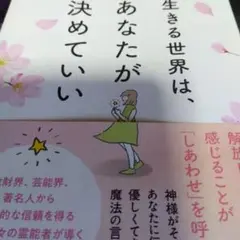 生きる世界は、
あなたが
決めていい
解放
感じることが
「しあわせ」を呼
神様がそ
あなたに
優しくて
魔法の言
財界、芸能界、
著名人から
的な信頼を得る
の霊能者が導く